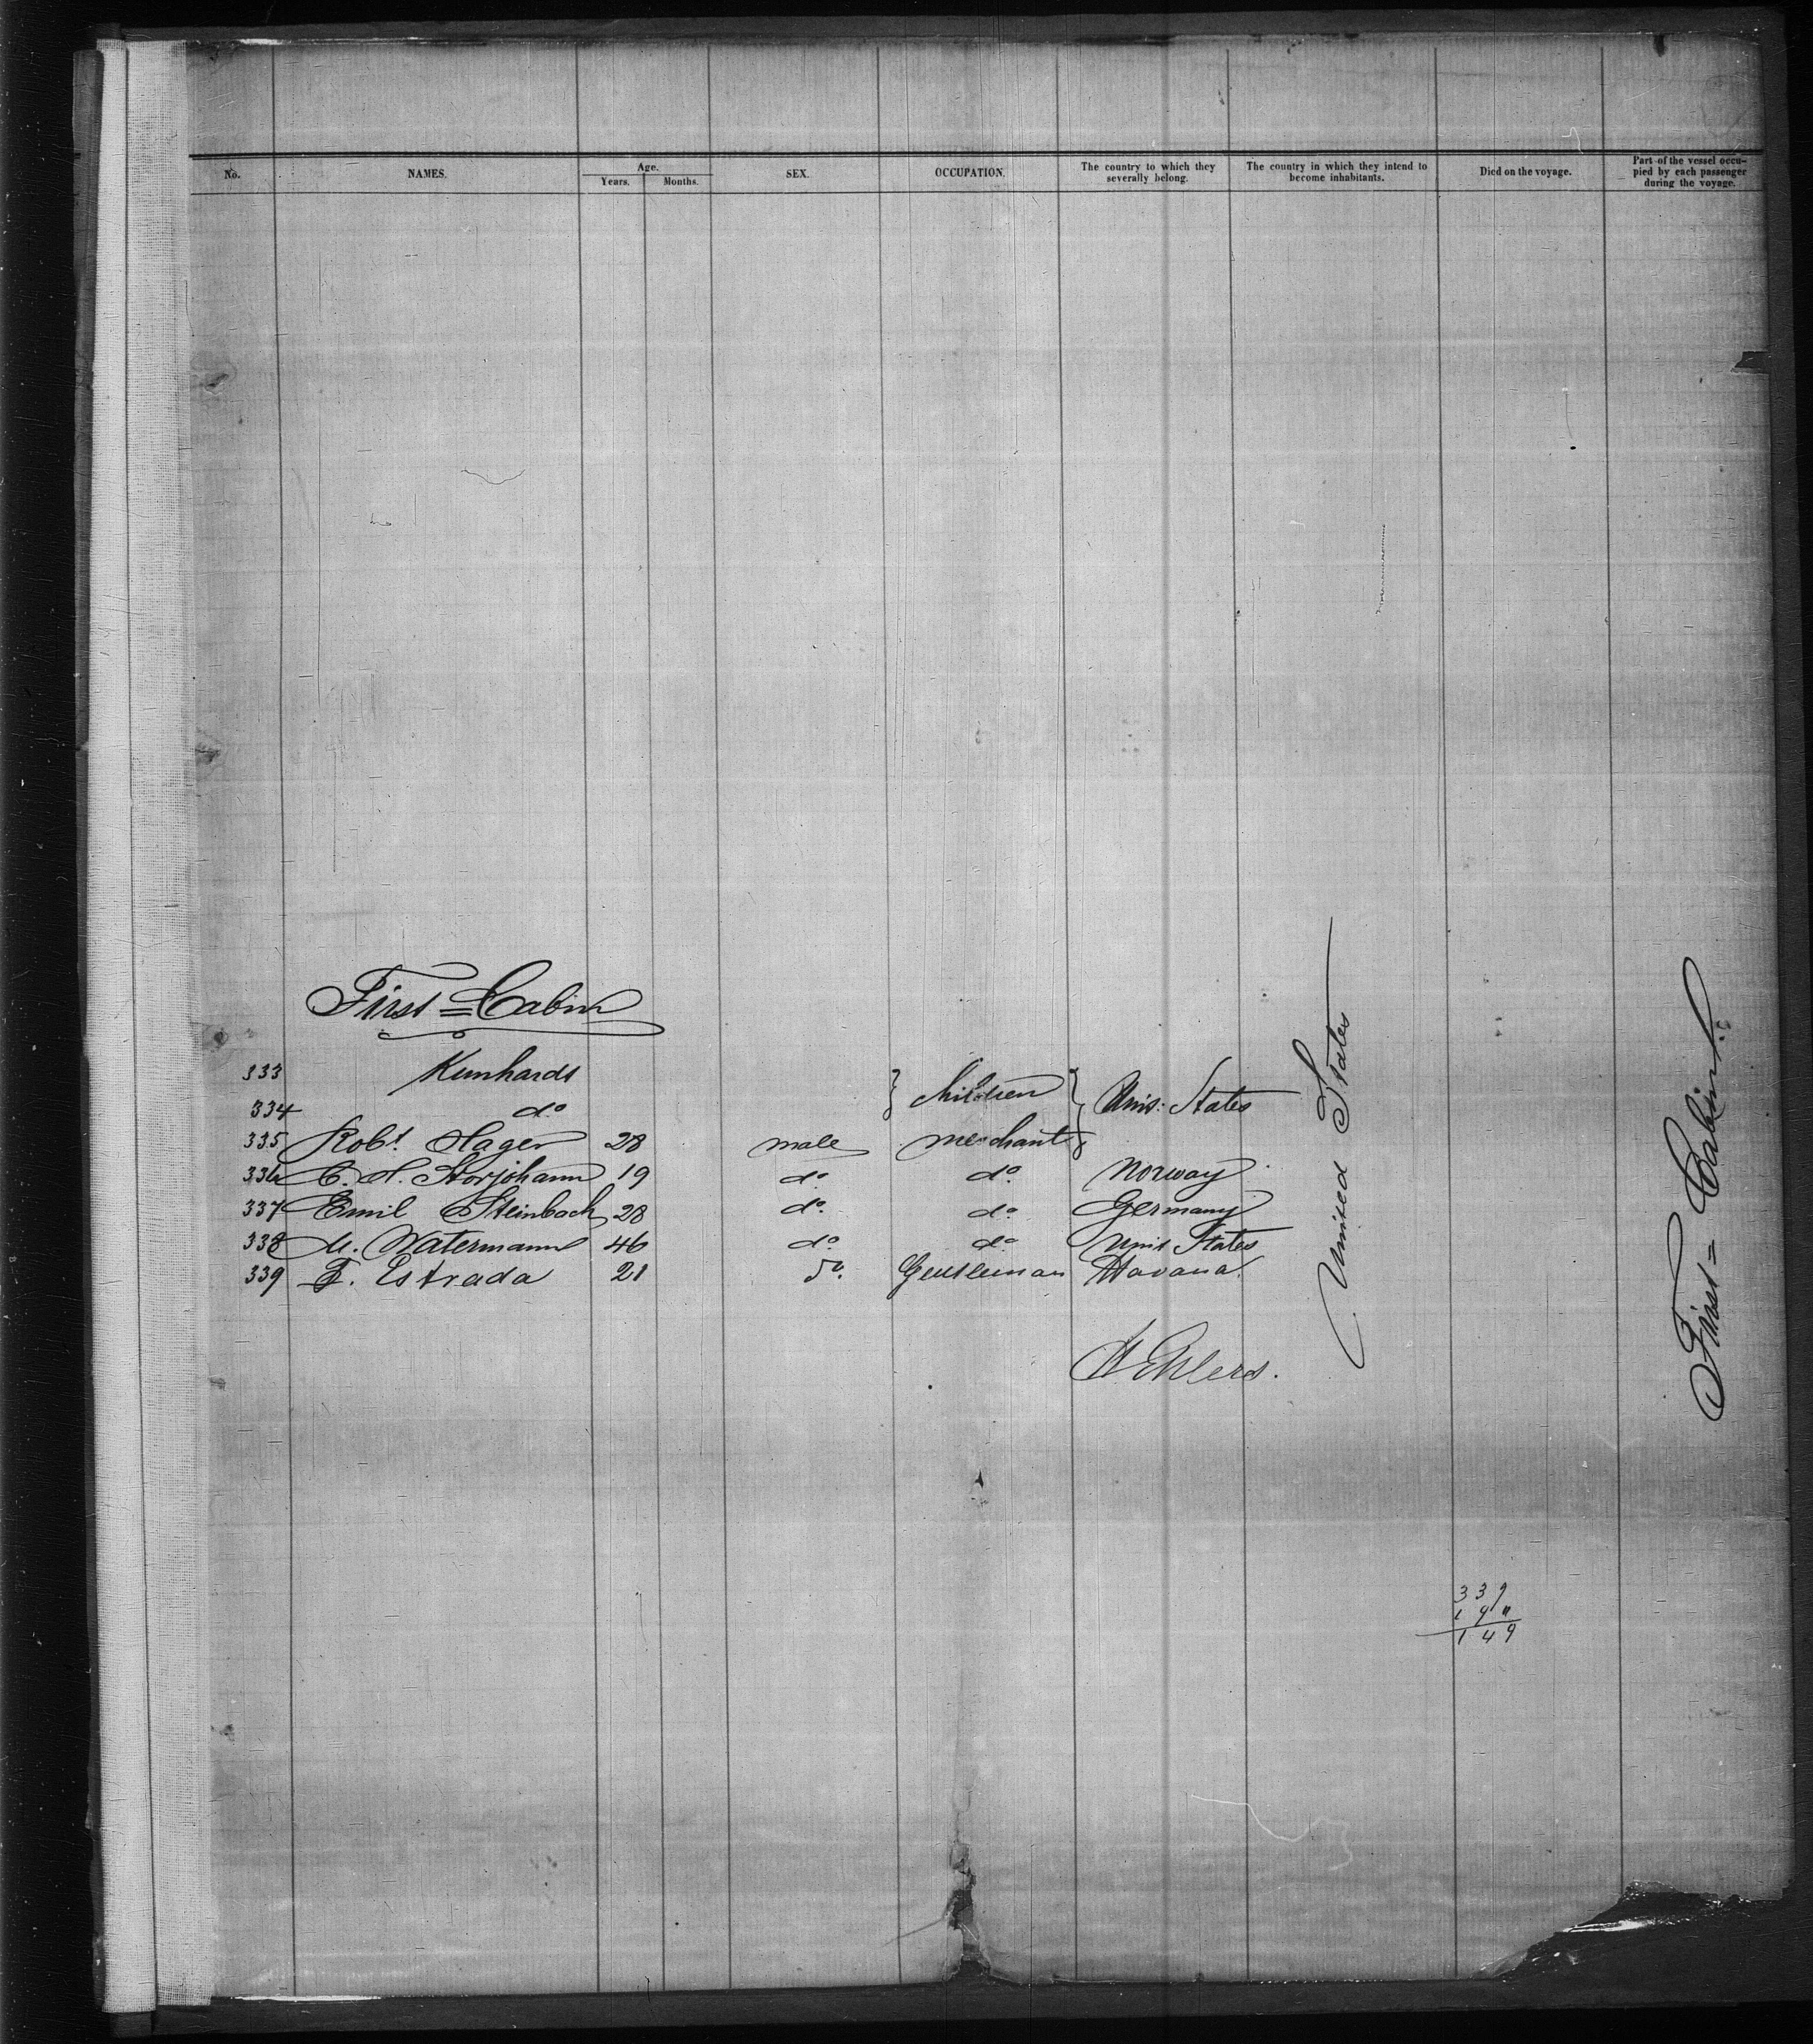 No. NAMES. Age. Years. Months. SEX. OCCUPATION. The country to which they severally belong. The country in which they intend to become inhabitants. Died on the voyage. Part of the vessel occu- pied by each passenger during the voyage.
First = Cabin
333 Kunhardt
334 do } Children } Unit: States
335 Robt. Hager 28 male merchant
336 C. H. Storjohann 19 do do Norway
337 Emil Steinbach 28 do do Germany
338 M. Watermann 46 do do Unit States
339 F. Estrada 21 do. Gentleman Havana.
United States
First = Cabin.
H Ehlers.
339
190
149